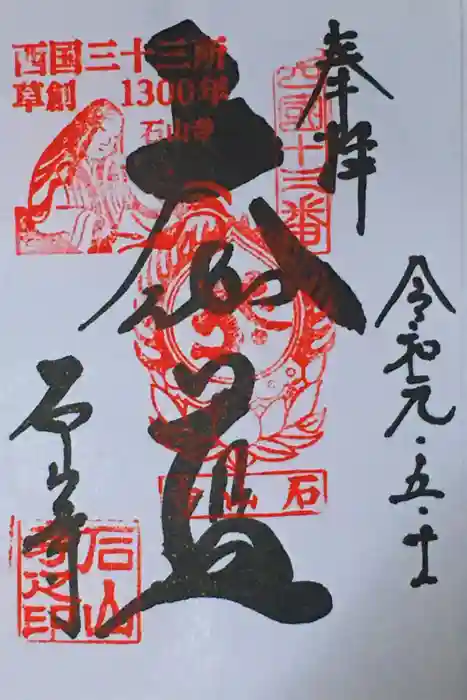 奉拝
西國十三番
令和元・五・十一
西国三十三所
草創 1300年
石山寺
大伽藍
石山寺
石山寺
石山寺之印